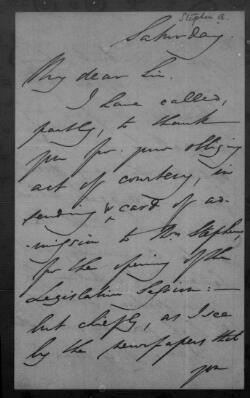 Stephen A.
Saturday.
My dear Sir.
I have called,
partly, to thank
you for your obliging
act of courtesy, in
sending a card of ad-
mission to Mrs Stephen,
for the opening of the
Legislative Session: -
but chiefly, as I see
by the newspapers that
you